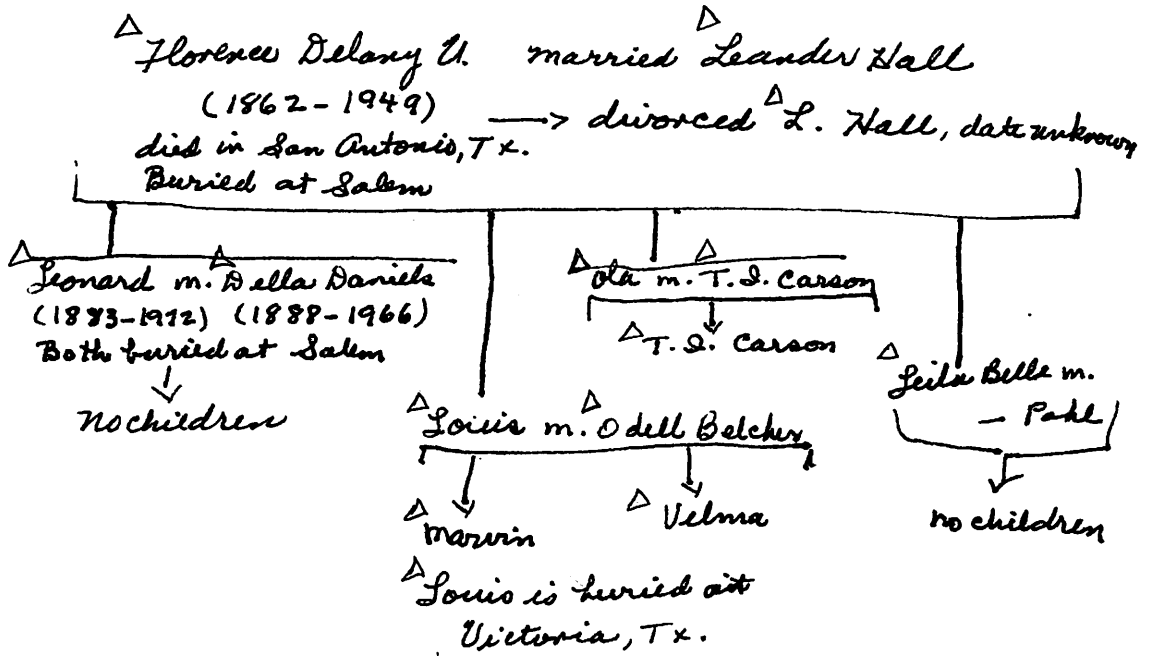 Florence Delany U. married Leander Hall
(1862-1949) → divorced L. Hall, date unknown
died in San Antonio, Tx.
Buried at Salem
Leonard m. Della Daniels
(1883-1972) (1888-1966)
Both buried at Salem
No children
Ola m. T. I. Carson
T. I. Carson
Louis m. Odell Belcher
Marvin
Velma
Louis is buried at
Victoria, Tx.
Leila Belle m.
— Pahl
no children